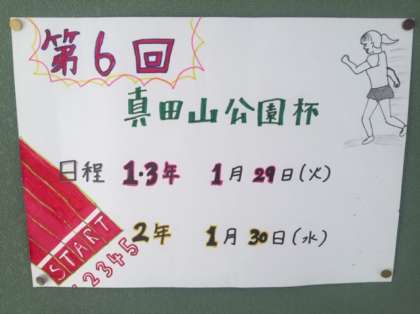 第6回
真田山公園杯
日程 1・3年 1月29日(火)
2年 1月30日(水)
START
12345